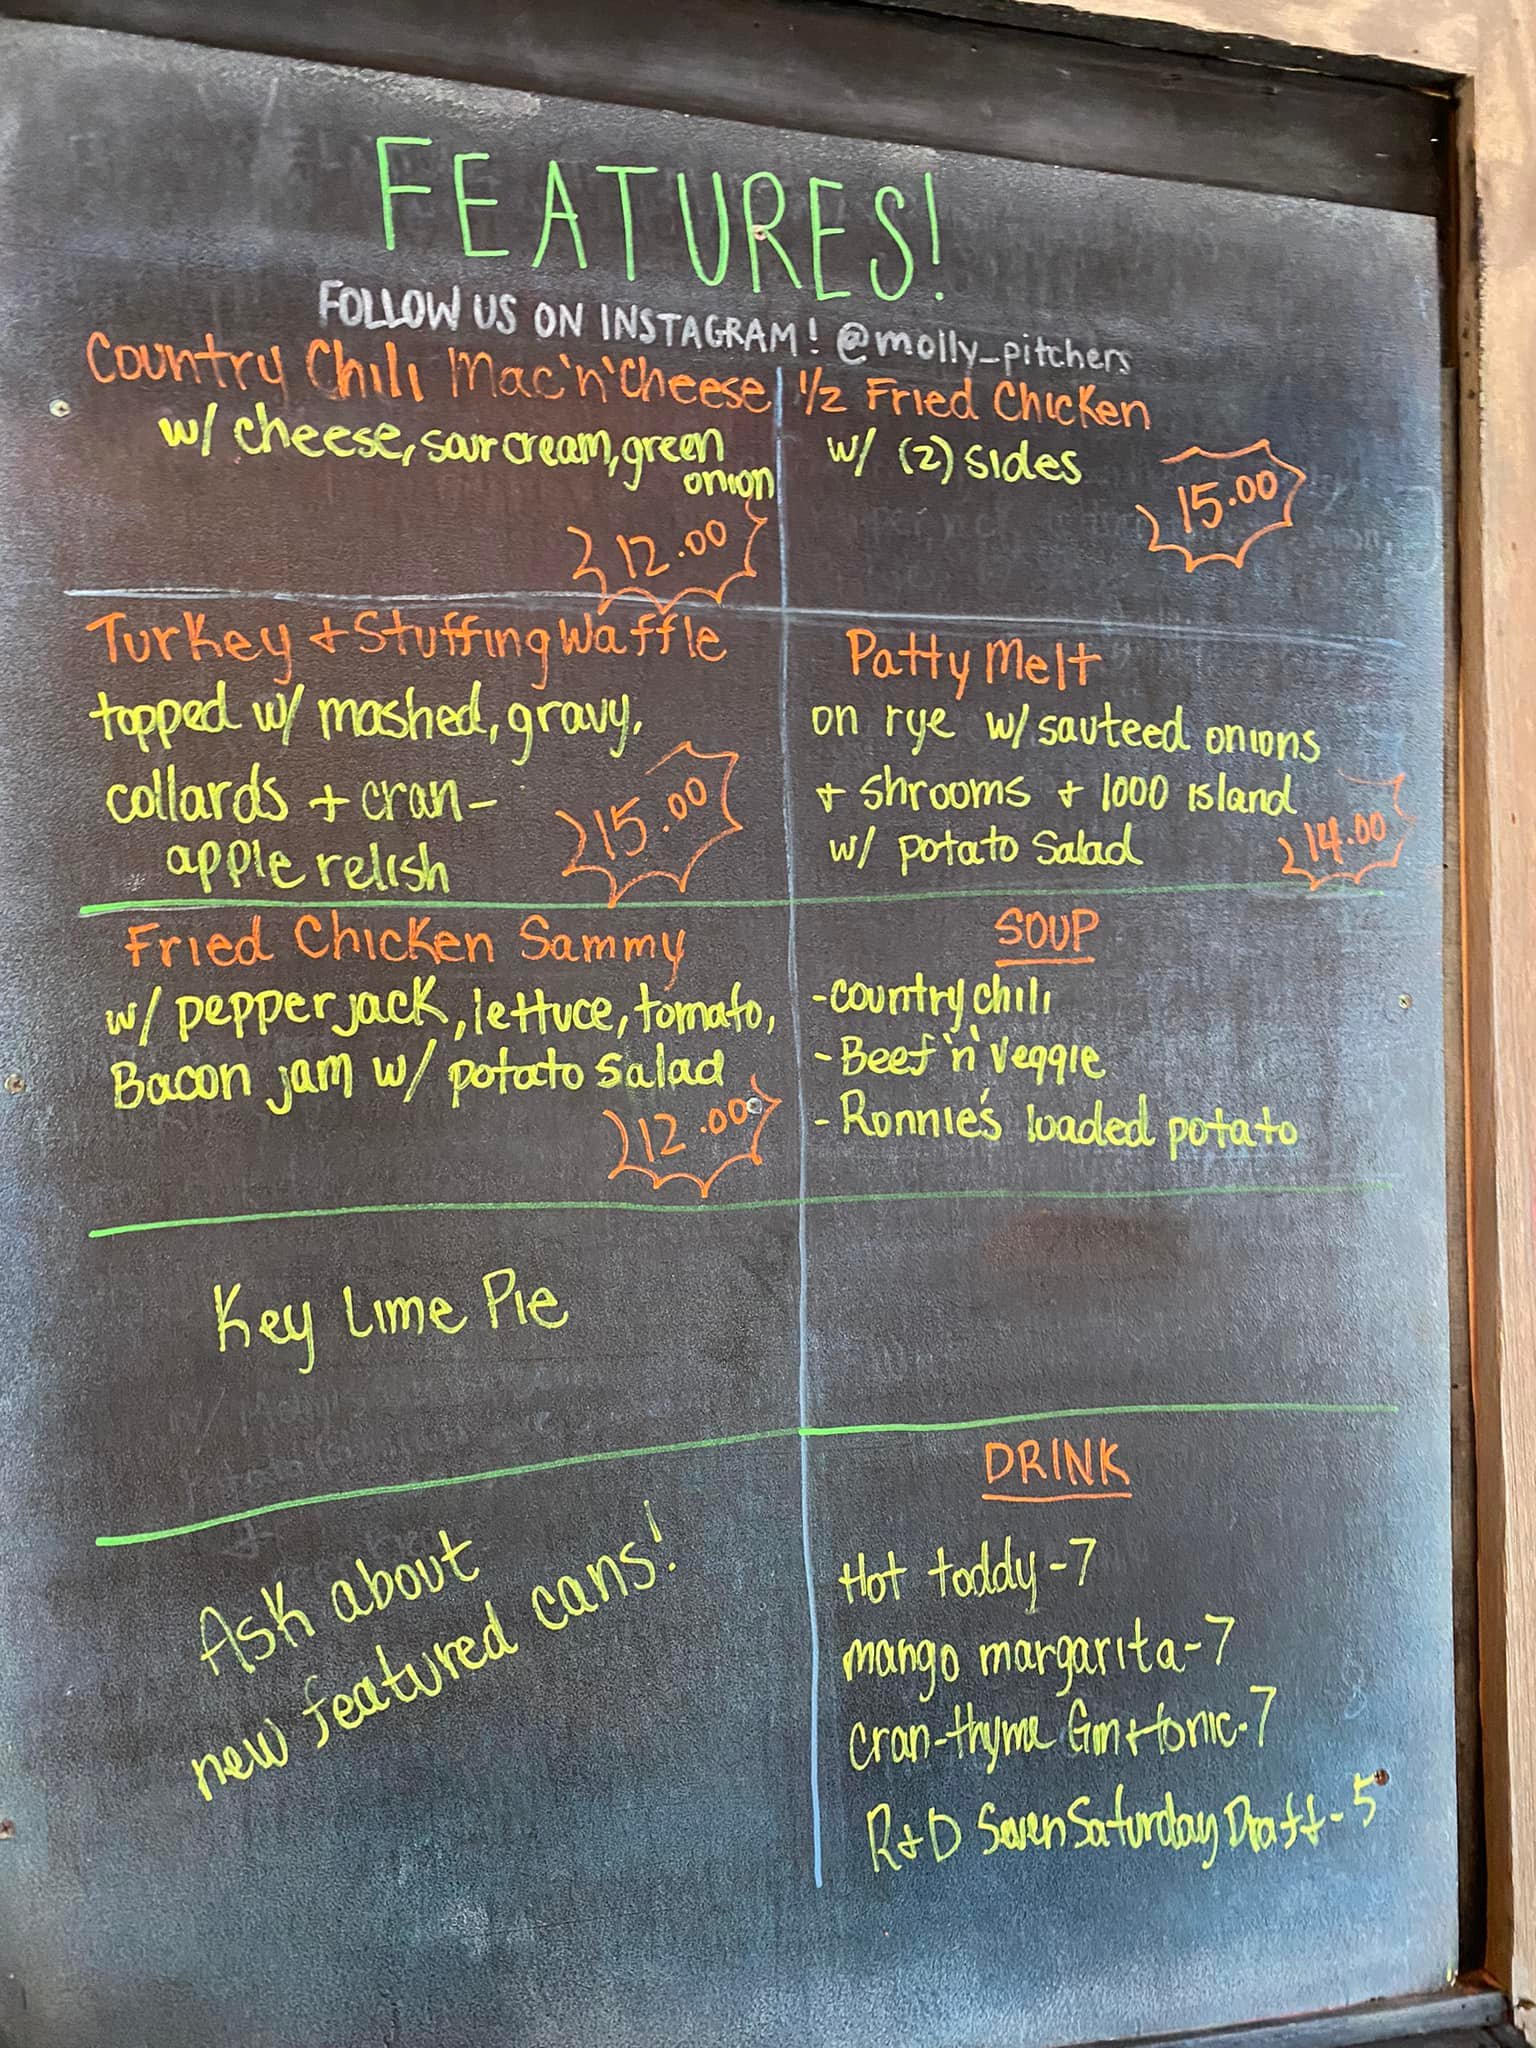 FEATURES!
FOLLOW US ON INSTAGRAM! @molly_pitchers
Country Chili Mac'n'Cheese
w/ cheese, sour cream, green
onion
12.00
1/2 Fried Chicken
w/ (2) sides
15.00
Turkey + Stuffing Waffle
topped w/ mashed, gravy,
collards + cran-
apple relish
15.00
Patty Melt
on rye w/ sauteed onions
+ shrooms + 1000 island
w/ potato salad
14.00
Fried Chicken Sammy
w/ pepper jack, lettuce, tomato,
Bacon jam w/ potato salad
12.00
SOUP
-country chili
-Beef 'n' Veggie
-Ronnie's loaded potato
Key Lime Pie
Ask about
new featured cans!
DRINK
Hot toddy-7
mango margarita-7
cran-thyme Gin+tonic-7
R+D Seven Saturday Draft-5